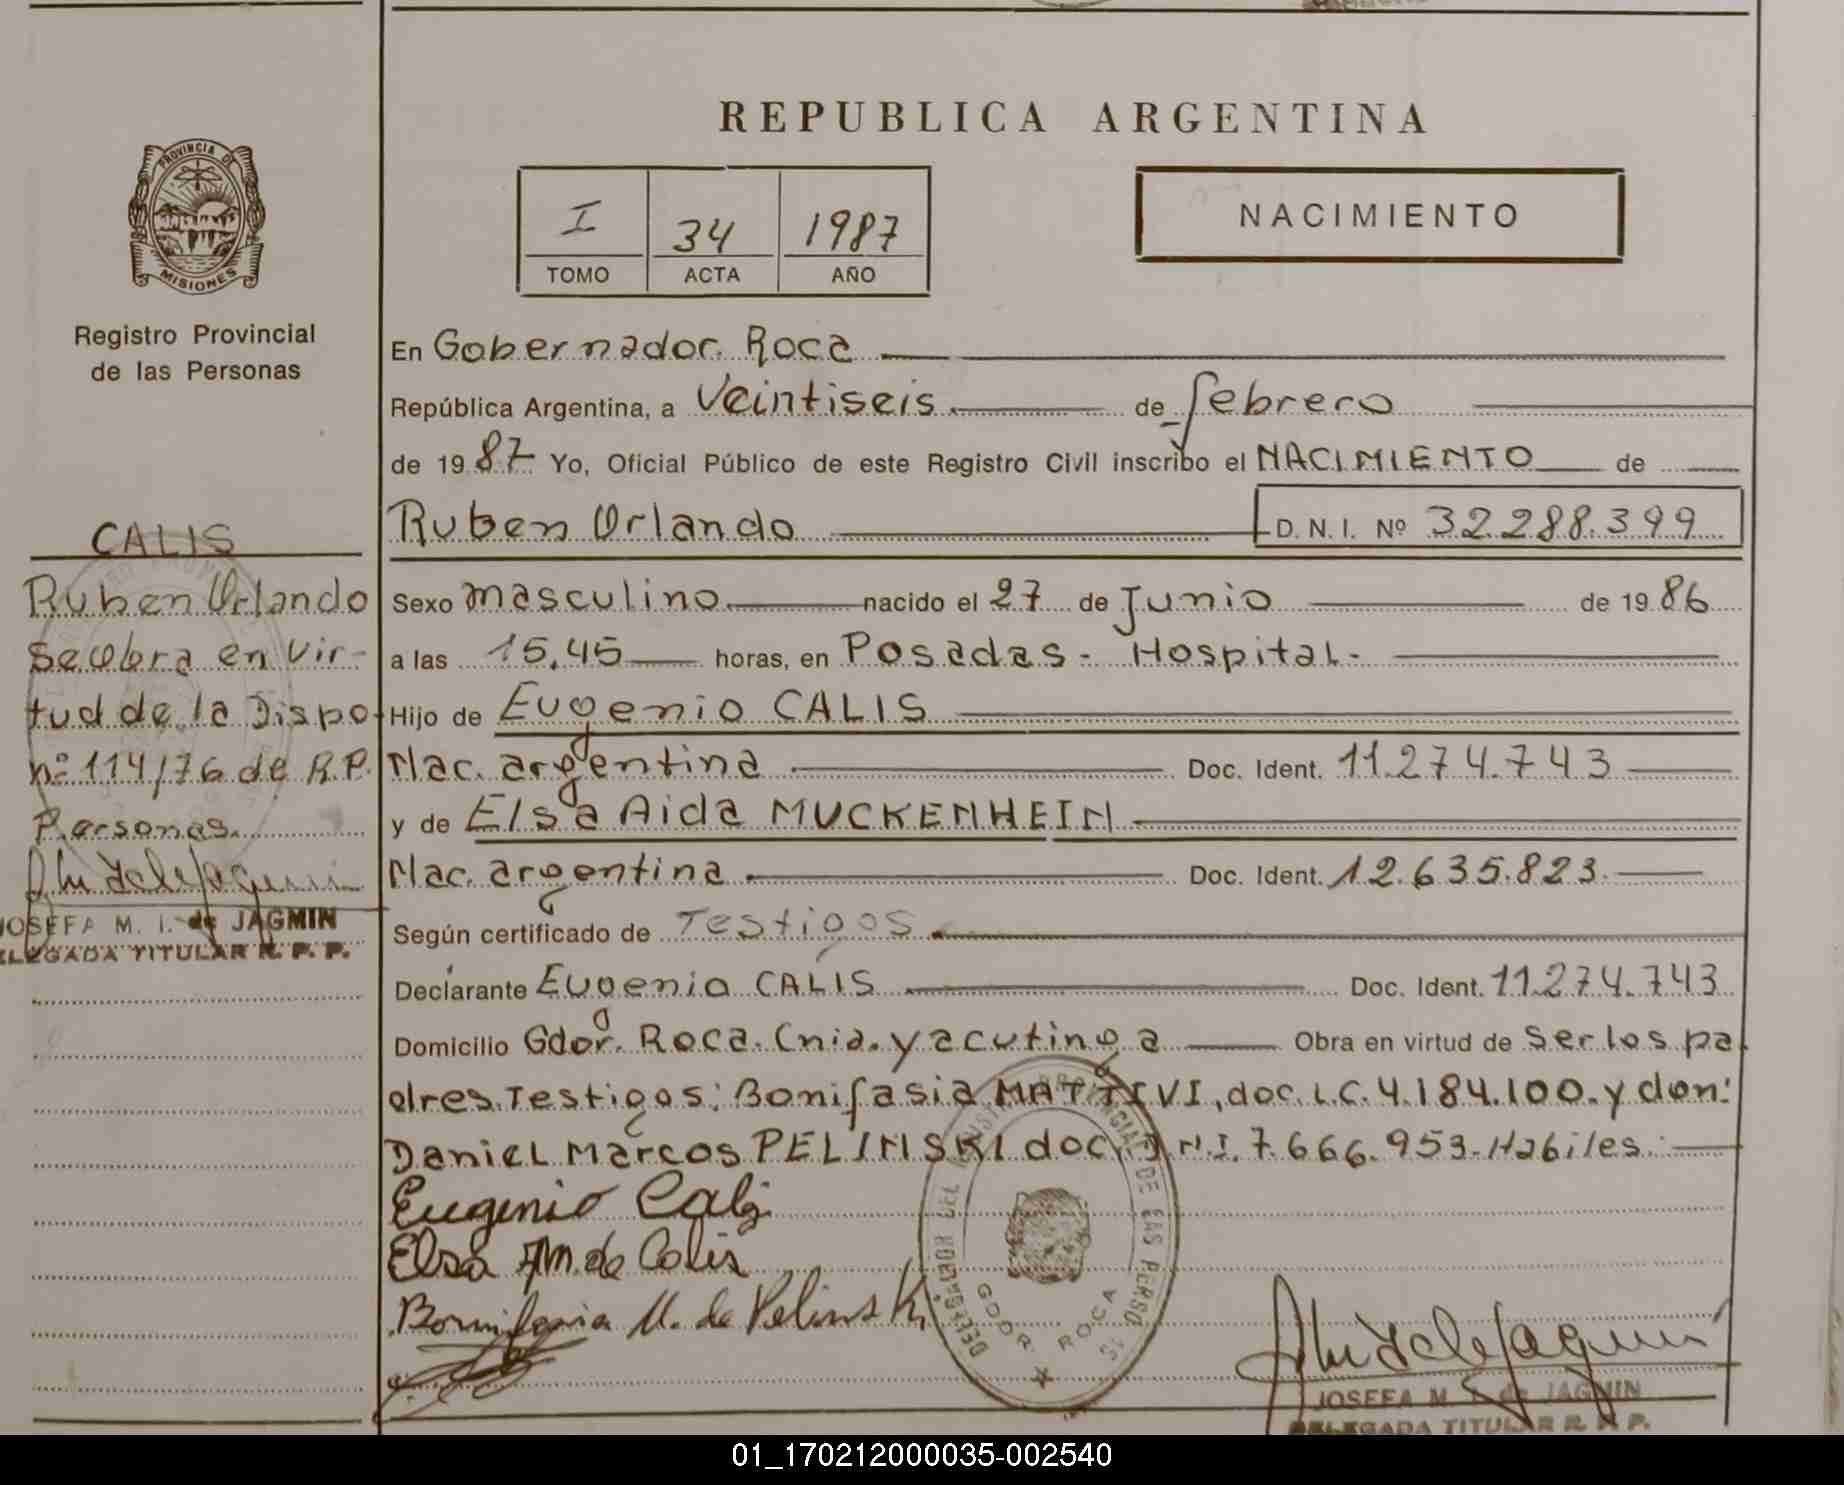 REPUBLICA ARGENTINA
PROVINCIA DE
MISIONES
I 34 1987
TOMO ACTA AÑO
NACIMIENTO
Registro Provincial
de las Personas
En Gobernador Roca
República Argentina, a Veintiseis de febrero
de 1987 Yo, Oficial Público de este Registro Civil inscribo el NACIMIENTO de
Ruben Orlando D. N. I. Nº 32.288.399
CALIS
Ruben Orlando
Se Obra en Vir-
tud de la Dispo
nº 114/76 de R.P.
Personas.
JOSEFA M. I. de JAGMIN
DELEGADA TITULAR R. P. P.
Sexo masculino nacido el 27 de Junio de 1986
a las 15,45 horas, en Posadas - Hospital -
Hijo de Eugenio CALIS
Nac. argentina Doc. Ident. 11.274.743
y de Elsa Aida MUCKENHEIN
Nac. argentina Doc. Ident. 12.635.823.
Según certificado de Testigos
Declarante Eugenio CALIS Doc. Ident. 11.274.743
Domicilio Gdor. Roca. Cnia. Yacutinga Obra en virtud de Ser los pa
dres. Testigos: Bonifasia MATTIVI, doc. L.C. 4.184.100. y don:
Daniel Marcos PELINSKI doc. D.N.I. 7.666.953. Habiles.
Eugenio Calis
Elsa A M. de Calis
Bonifasia M. de Pelinski
GDOR ROCA
JOSEFA M. I. de JAGMIN
DELEGADA TITULAR R. P. P.
01_170212000035-002540